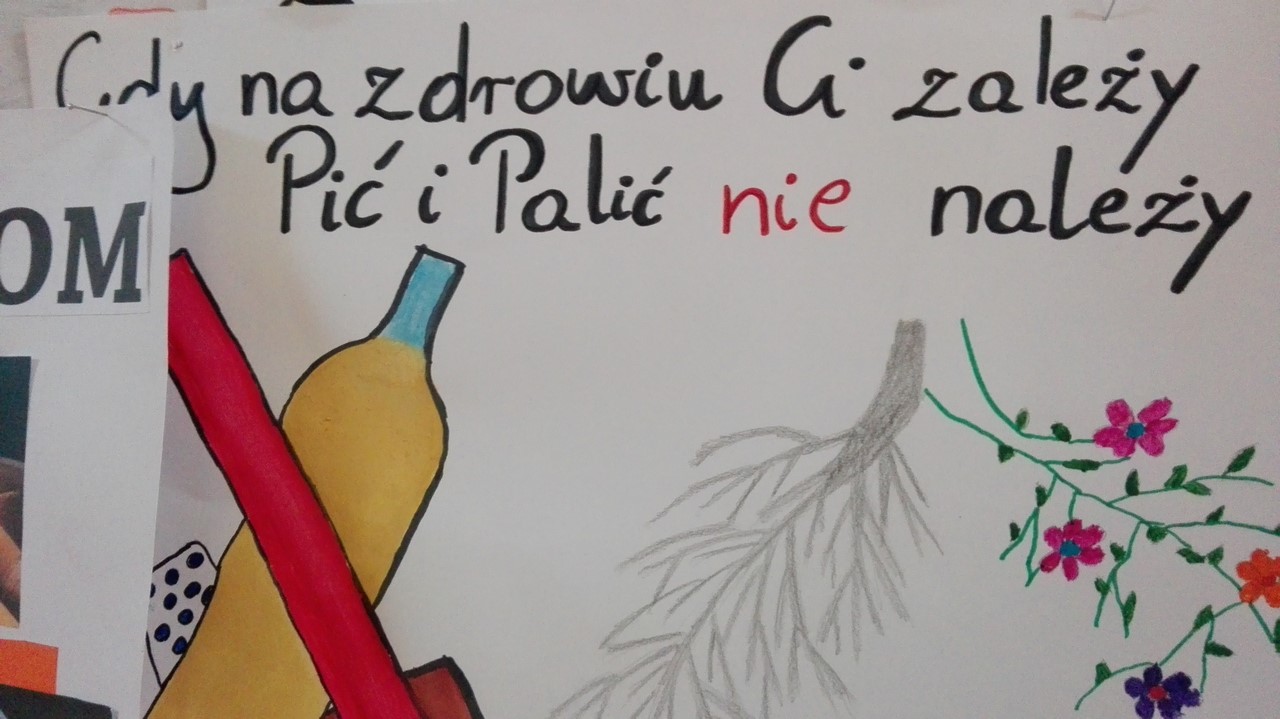 Gdy na zdrowiu Ci zależy
Pić i Palić nie należy
OM